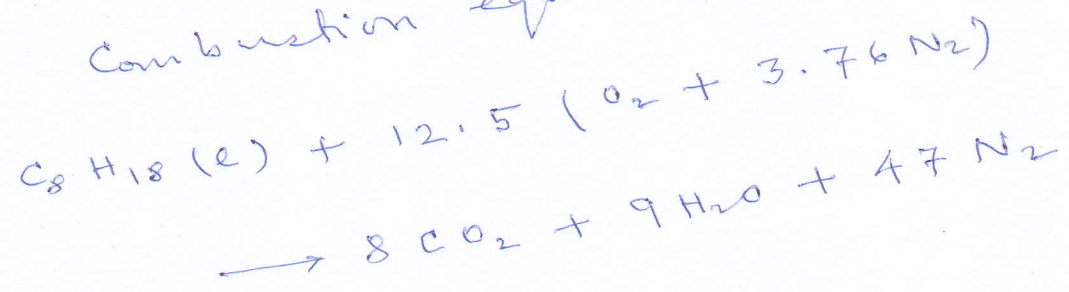 Combustion
C8 H18 (l) + 12.5 (O2 + 3.76 N2)
→ 8 CO2 + 9 H2O + 47 N2